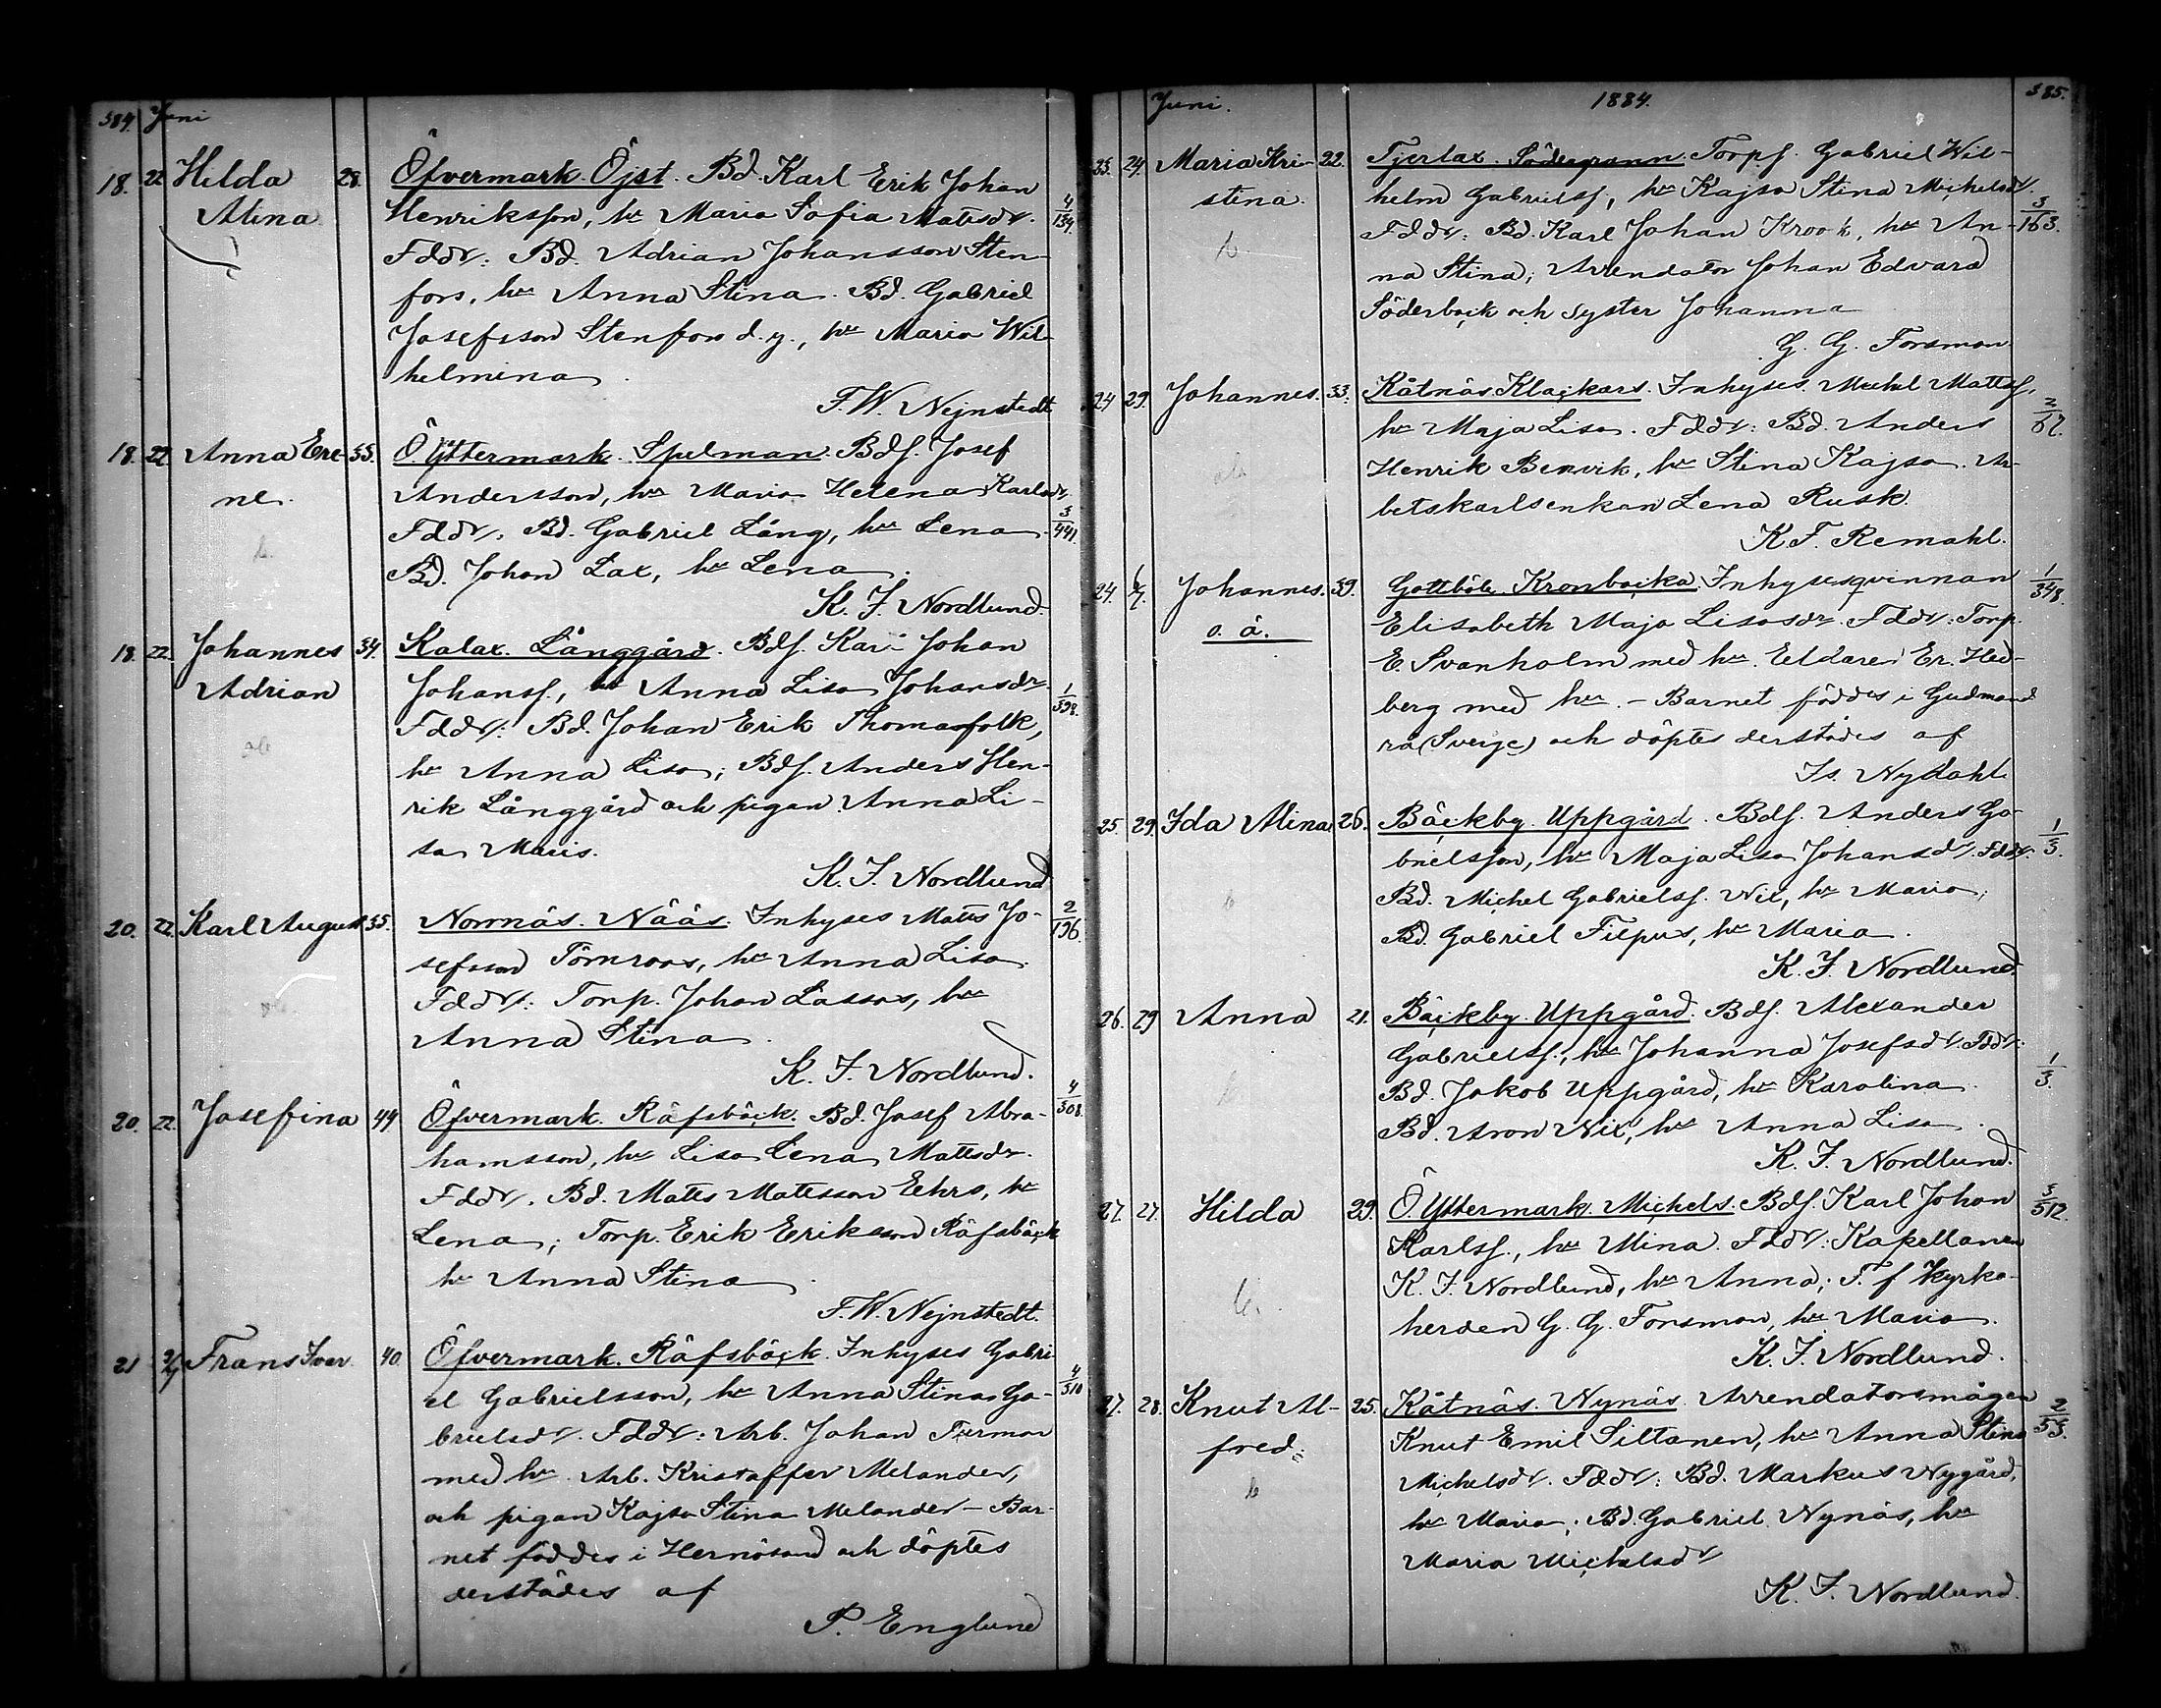 384. Juni
18. 22 Hilda 28. Öfvermark. Öjst. Bd. Karl Erik Johan
Alina Henriksson, hu Maria Sofia Mattsdr. 4/134.
Fddr: Bd. Adrian Johansson Sten-
fors, hu Anna Stina. Bd. Gabriel
Josefsson Stenfors d.y., hu Maria Wil-
helmina
F.W. Nejnstedt
18. 22. Anna Ere- 35. Ö. Yttermark. Spelman. Bdf. Josef
ne. Andersson, hu Maria Helena Karlsdr.
Fddr. Bd. Gabriel Lång, hu Lena. 3/441.
b. Bd. Johan Lax, hu Lena.
K. J. Nordlund.
18. 22. Johannes 34. Kalax. Långgård. Bdf. Karl Johan
Adrian Johansf., hu Anna Lisa Johansdr. 1/398.
Fddr: Bd. Johan Erik Thomasfolk,
hu Anna Lisa; Bdf. Anders Hen-
rik Långgård och pigan Anna Li-
sa Maris.
K. J. Nordlund
20. 22. Karl August 35. Norrnäs. Nääs. Inhyses Matts Jo- 2/196.
sefsson Törnroos, hu Anna Lisa
Fddr: Torp. Johan Lassas, hu
Anna Stina
K. J. Nordlund.
20. 22. Josefina 44 Öfvermark. Räfsbäck. Bd. Josef Abra- 4/308.
hamsson, hu Lisa Lena Mattsdr.
Fddr. Bd. Matts Mattsson Eehrs, hu
Lena; Torp. Erik Eriksson Räfsbäck
hu Anna Stina
F.W. Nejnstedt.
21 Frans Ivar. 40. Öfvermark. Räfsbäck. Inhyses Gabri-
el Gabrielsson, hu Anna Stina Ga- 4/310
brielsdr. Fddr: Arb. Johan Furman
med hu. Arb. Kristoffer Melander,
och pigan Kajsa Stina Melander – Bar-
net föddes i Hernösand och döptes
derstädes af
P. Englund
Juni. 1884. 385.
23. 24. Maria Kri- 22. Tjerlax. Södergrann. Torpf. Gabriel Wil-
stina. helm Gabrielsf, hu Kajsa Stina Michelsdr.
b. Fddr: Bd. Karl Johan Krook, hu An- 3/163.
na Stina; Arrendator Johan Edvard
Söderback och syster Johanna
G. G. Forsman
24 29. Johannes. 33. Kåtnäs Klackars. Inhyses Michel Mattsf,
hu Maja Lisa. Fddr: Bd. Anders 2/67.
Henrik Benvik, hu Stina Kajsa. Ar-
betskarlsenkan Lena Rusk.
K F. Remahl.
24. Johannes. 39. Gottböle. Kronbacka. Inhysesqvinnan 1/348.
o. ä. Elisabeth Maja Lisasdr. Fddr: Torp.
E. Svanholm med hu. Eldaren Er. Hed-
berg med hu. – Barnet föddes i Gudmund-
ra (Sverge) och döptes derstädes af
Is. Nydahl
25. 29. Ida Alina 26. Bäckby. Uppgård. Bdf. Anders Ga-
brielsson, hu Maja Lisa Johansdr. Fddr. 1/3.
b Bd. Michel Gabrielsf. Nix, hu Maria;
Bd. Gabriel Filpus, hu Maria.
K. J. Nordlund.
26. 29 Anna 21. Bäckby. Uppgård. Bdf. Alexander
Gabrielsf., hu Johanna Josefsdr. Fddr: 1/3.
b Bd. Jakob Uppgård, hu Karolina
Bd. Aron Nix, hu Anna Lisa.
K. J. Nordlund.
27. 27. Hilda 29. Ö. Yttermark. Michels. Bdf. Karl Johan 3/512.
Karlsf., hu Mina. Fddr: Kapellanen
b. K. J. Nordlund, hu Anna; T. f Kyrko-
herden G. G. Forsman, hu Maria.
K. J. Nordlund.
27. 28. Knut Al- 25. Kåtnäs. Nynäs. Arrendatorsmågen
fred. Knut Emil Siltanen, hu Anna Stina 2/53.
b Michelsdr. Fddr: Bd. Markus Nygård,
hu Maria; Bd. Gabriel Nynäs, hu
Maria Michelsdr
K. J. Nordlund.